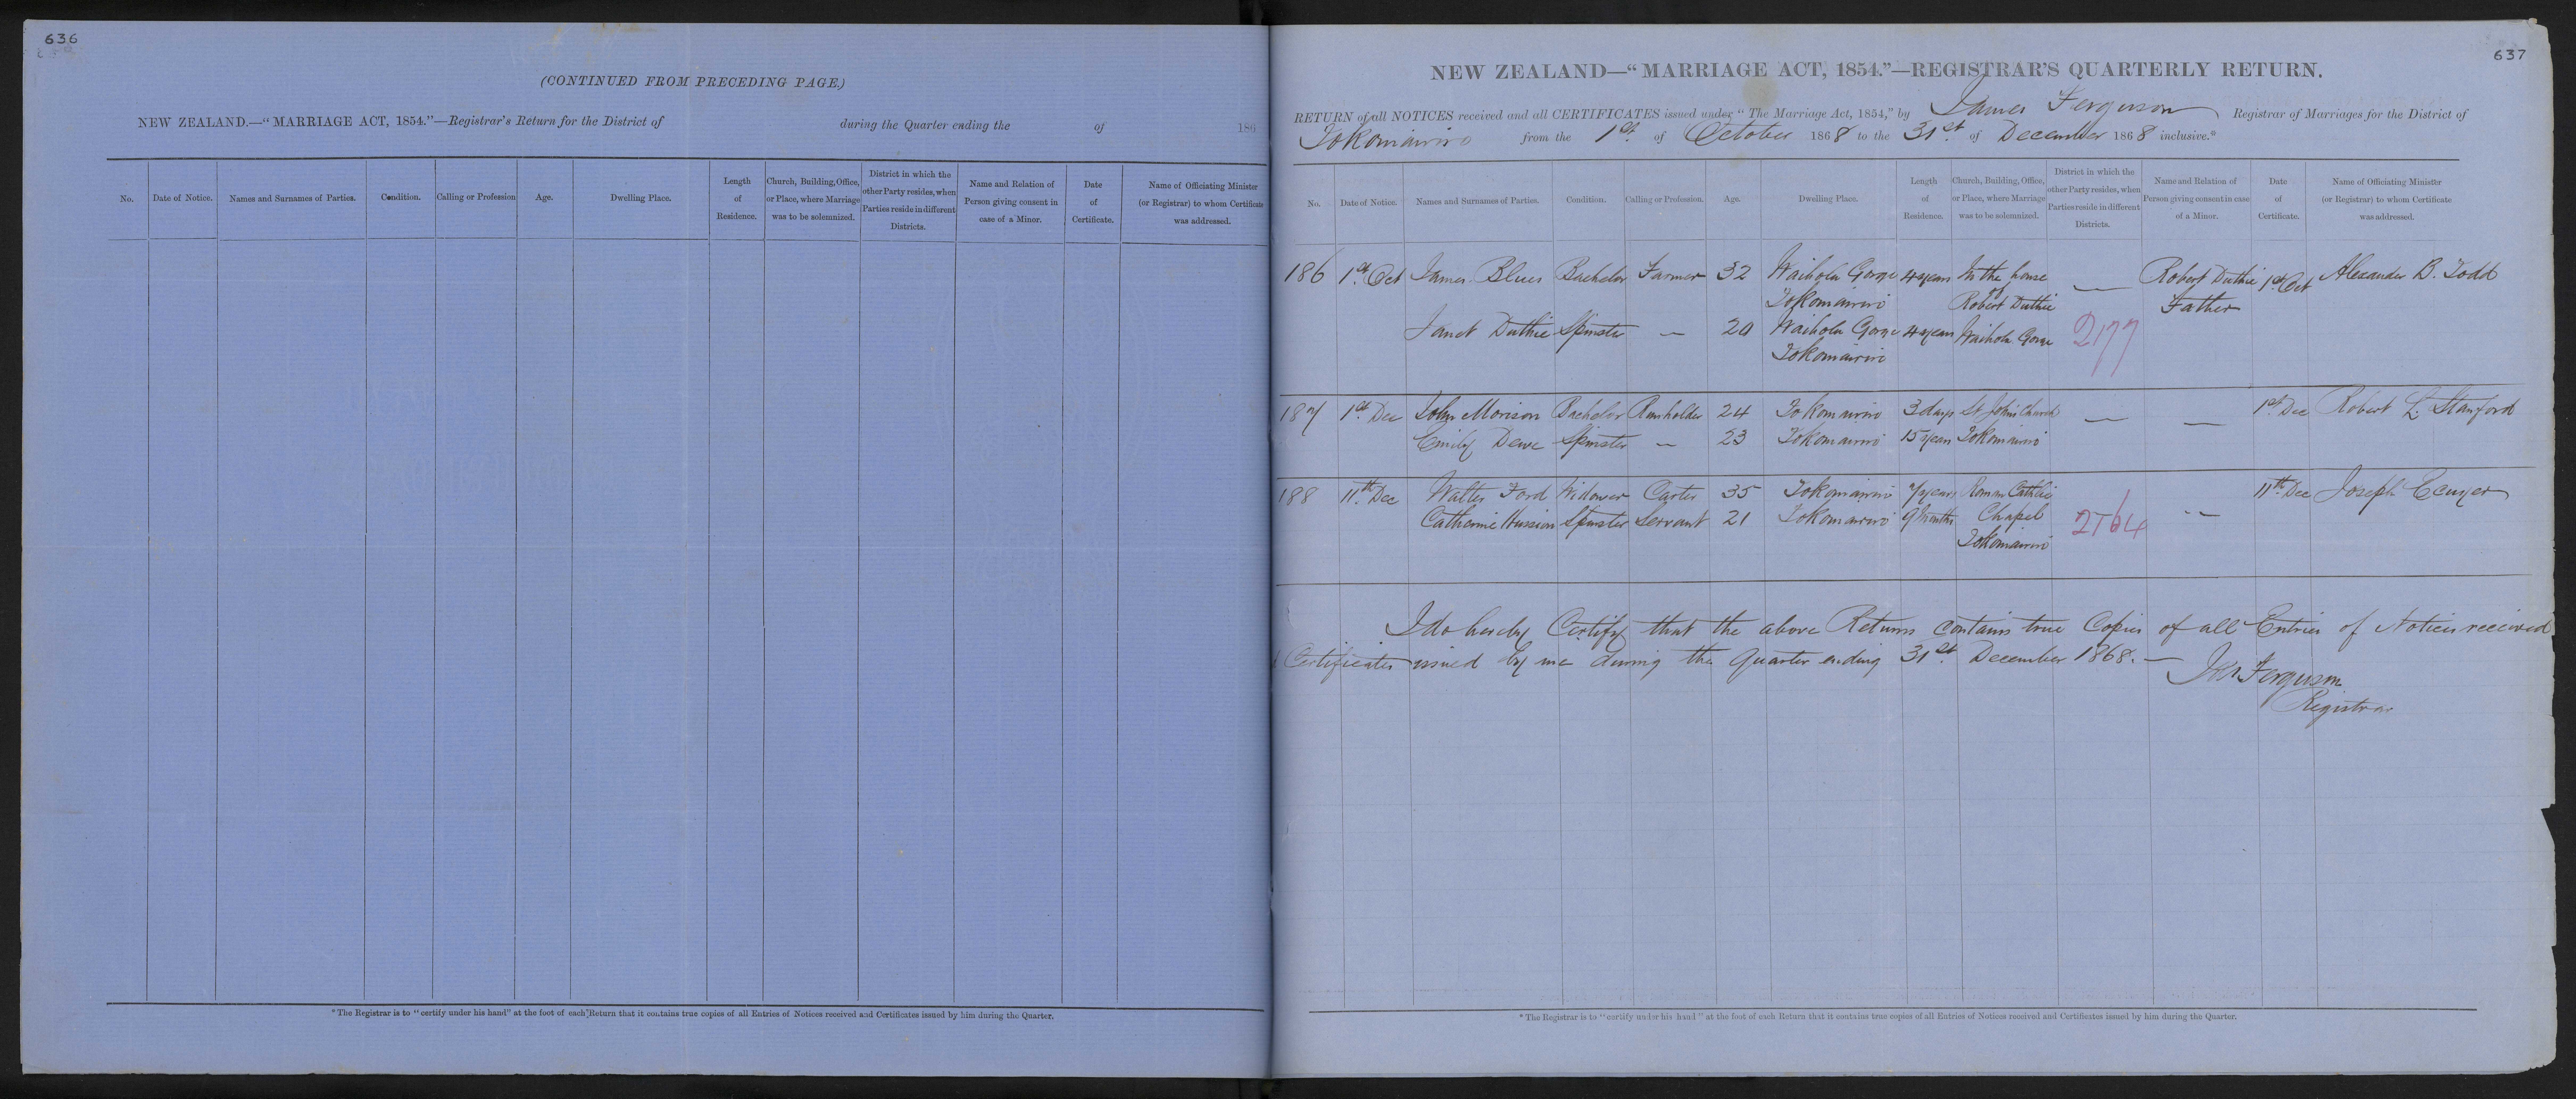 636
(CONTINUED FROM PRECEDING PAGE.)
NEW ZEALAND.—"MARRIAGE ACT, 1854."—Registrar's Return for the District of during the Quarter ending the of 186
No. Date of Notice. Names and Surnames of Parties. Condition. Calling or Profession Age. Dwelling Place. Length of Residence. Church, Building, Office, or Place, where Marriage was to be solemnized. District in which the other Party resides, when Parties reside in different Districts. Name and Relation of Person giving consent in case of a Minor. Date of Certificate. Name of Officiating Minister (or Registrar) to whom Certificate was addressed.
*The Registrar is to "certify under his hand" at the foot of each Return that it contains true copies of all Entries of Notices received and Certificates issued by him during the Quarter.
637
NEW ZEALAND—"MARRIAGE ACT, 1854."—REGISTRAR'S QUARTERLY RETURN.
RETURN of all NOTICES received and all CERTIFICATES issued under "The Marriage Act, 1854," by James Ferguson Registrar of Marriages for the District of
Tokomairiro from the 1st. of October 1868 to the 31st. of December 1868 inclusive.*
No. Date of Notice. Names and Surnames of Parties. Condition. Calling or Profession. Age. Dwelling Place. Length of Residence. Church, Building, Office, or Place, where Marriage was to be solemnized. District in which the other Party resides, when Parties reside in different Districts. Name and Relation of Person giving consent in case of a Minor. Date of Certificate. Name of Officiating Minister (or Registrar) to whom Certificate was addressed.
186 1st. Oct James Blues Bachelor Farmer 32 Waihola Gorge 4 years In the house — Robert Duthie 1st. Oct Alexander B. Todd
Tokomairiro of Robert Duthie Father
Janet Duthie Spinster — 20 Waihola Gorge 4 years Waihola Gorge 2177
Tokomairiro
187 1st. Dec John Morison Bachelor Runholder 24 Tokomairiro 3 days St John's Church — — 1st. Dec Robert L. Stanford
Emily Dewe Spinster — 23 Tokomairiro 15 years Tokomairiro
188 11th. Dec Walter Ford Widower Carter 35 Tokomairiro 7 years Roman Catholic 11th. Dec Joseph
Catherine Hussion Spinster Servant 21 Tokomairiro 9 Months Chapel 2164 —
Tokomairiro
I do hereby Certify that the above Return contains true Copies of all Entries of Notices received
Certificates issued by me during the Quarter ending 31st. December 1868. —
Jas Ferguson
Registrar
*The Registrar is to "certify under his hand" at the foot of each Return that it contains true copies of all Entries of Notices received and Certificates issued by him during the Quarter.